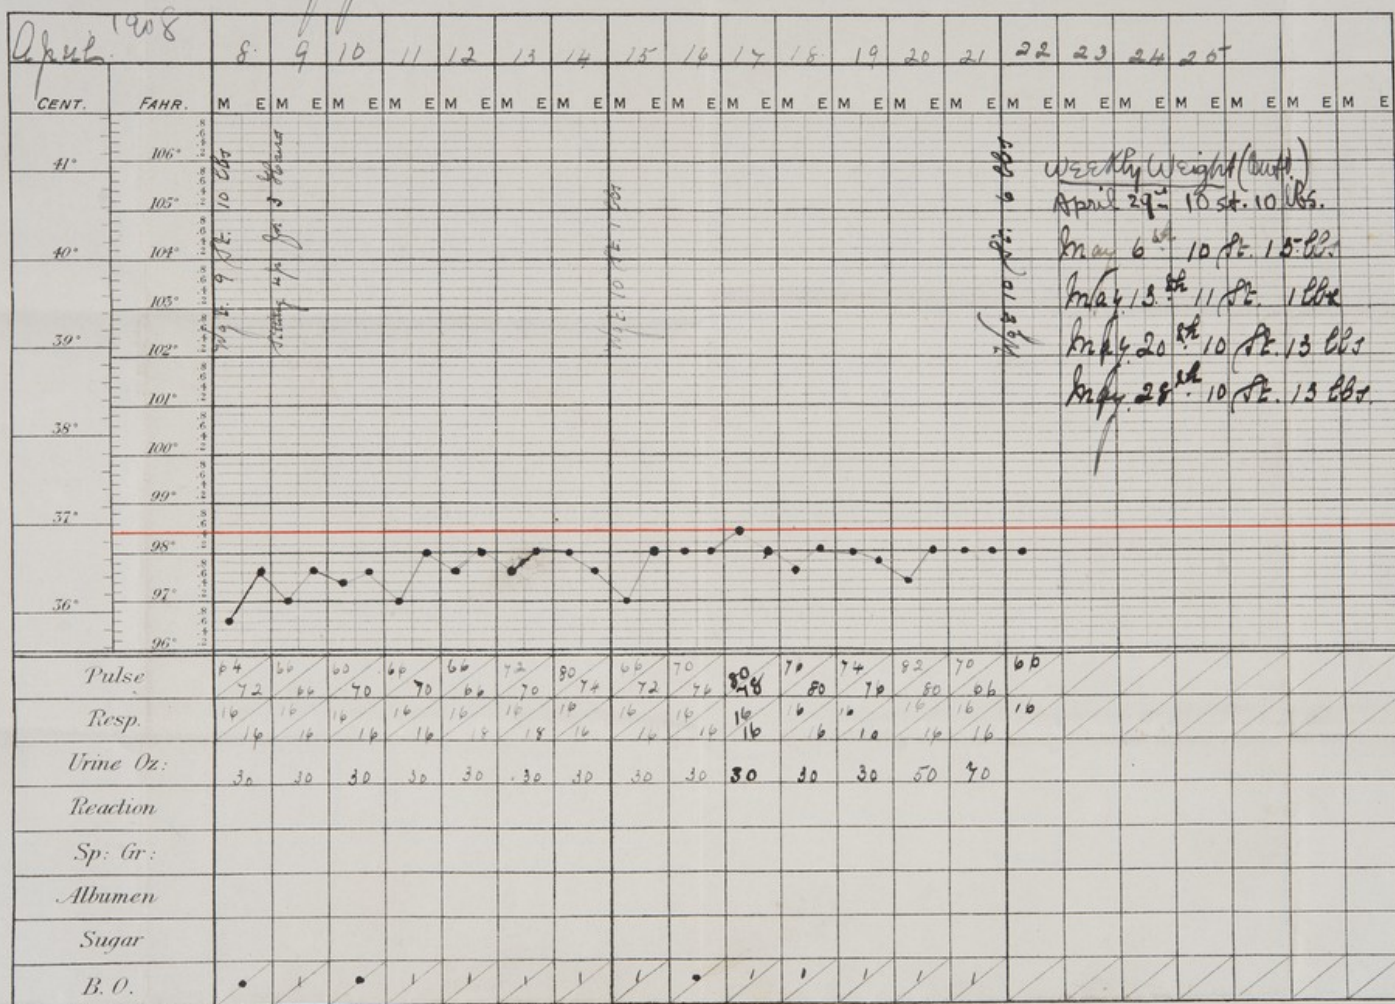 April 1908
8 9 10 11 12 13 14 15 16 17 18 19 20 21 22 23 24 25
CENT. FAHR. M E M E M E M E M E M E M E M E M E M E M E M E M E M E M E M E M E M E M E M E M E
41° 106°
105°
40° 104°
103°
39° 102°
101°
38° 100°
99°
37° 98°
97°
36° 96°
Wgt. 9 St. 10 lbs
Sitting up for 3 Hours
Wgt. 10 St. 1 lbs
Wgt 10 St. 9 lbs
Weekly Weight
April 29th 10 st. 10 lbs.
May 6th 10 St. 13 lbs.
May 13th 11 St. 1 lbs
May 20th 10 St. 13 lbs
May 28th 10 St. 13 lbs.
Pulse 64 66 60 60 66 72 80 66 70 80 76 74 82 70 60
72 66 70 70 66 70 74 72 76 78 80 76 80 66
Resp. 16 16 16 16 16 16 16 16 16 16 16 16 16 16 16
16 16 16 16 18 18 16 16 16 16 16 16 16
Urine Oz: 30 30 30 30 30 30 30 30 30 30 30 30 50 70
Reaction
Sp: Gr:
Albumen
Sugar
B. O. 1 1 1 1 1 1 1 1 1 1 1